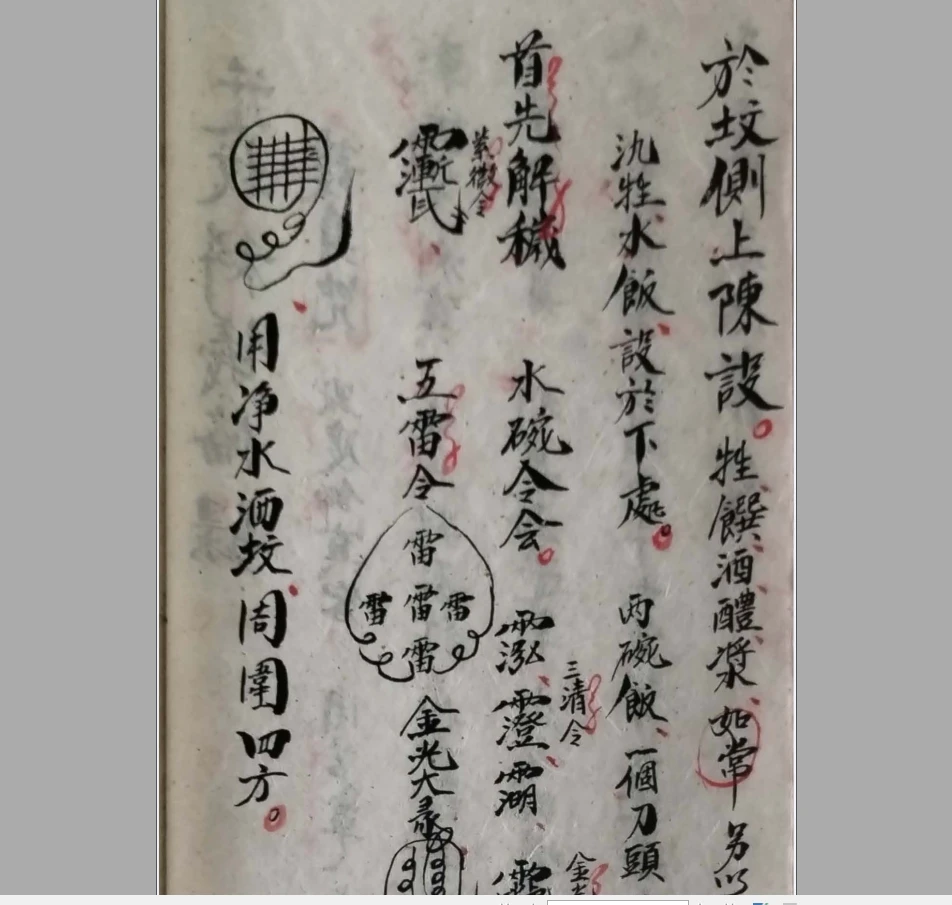 於坟側上陳設。牲饌酒醴漿、如常 另以
氿牲水飯設於下處。 两碗飯、一個刀頭
首先解穢 水碗令会。
三清令
金
紫微令
五雷令 雷 雷 雷 雷 雷 金光大
用净水洒坟、周圍四方。